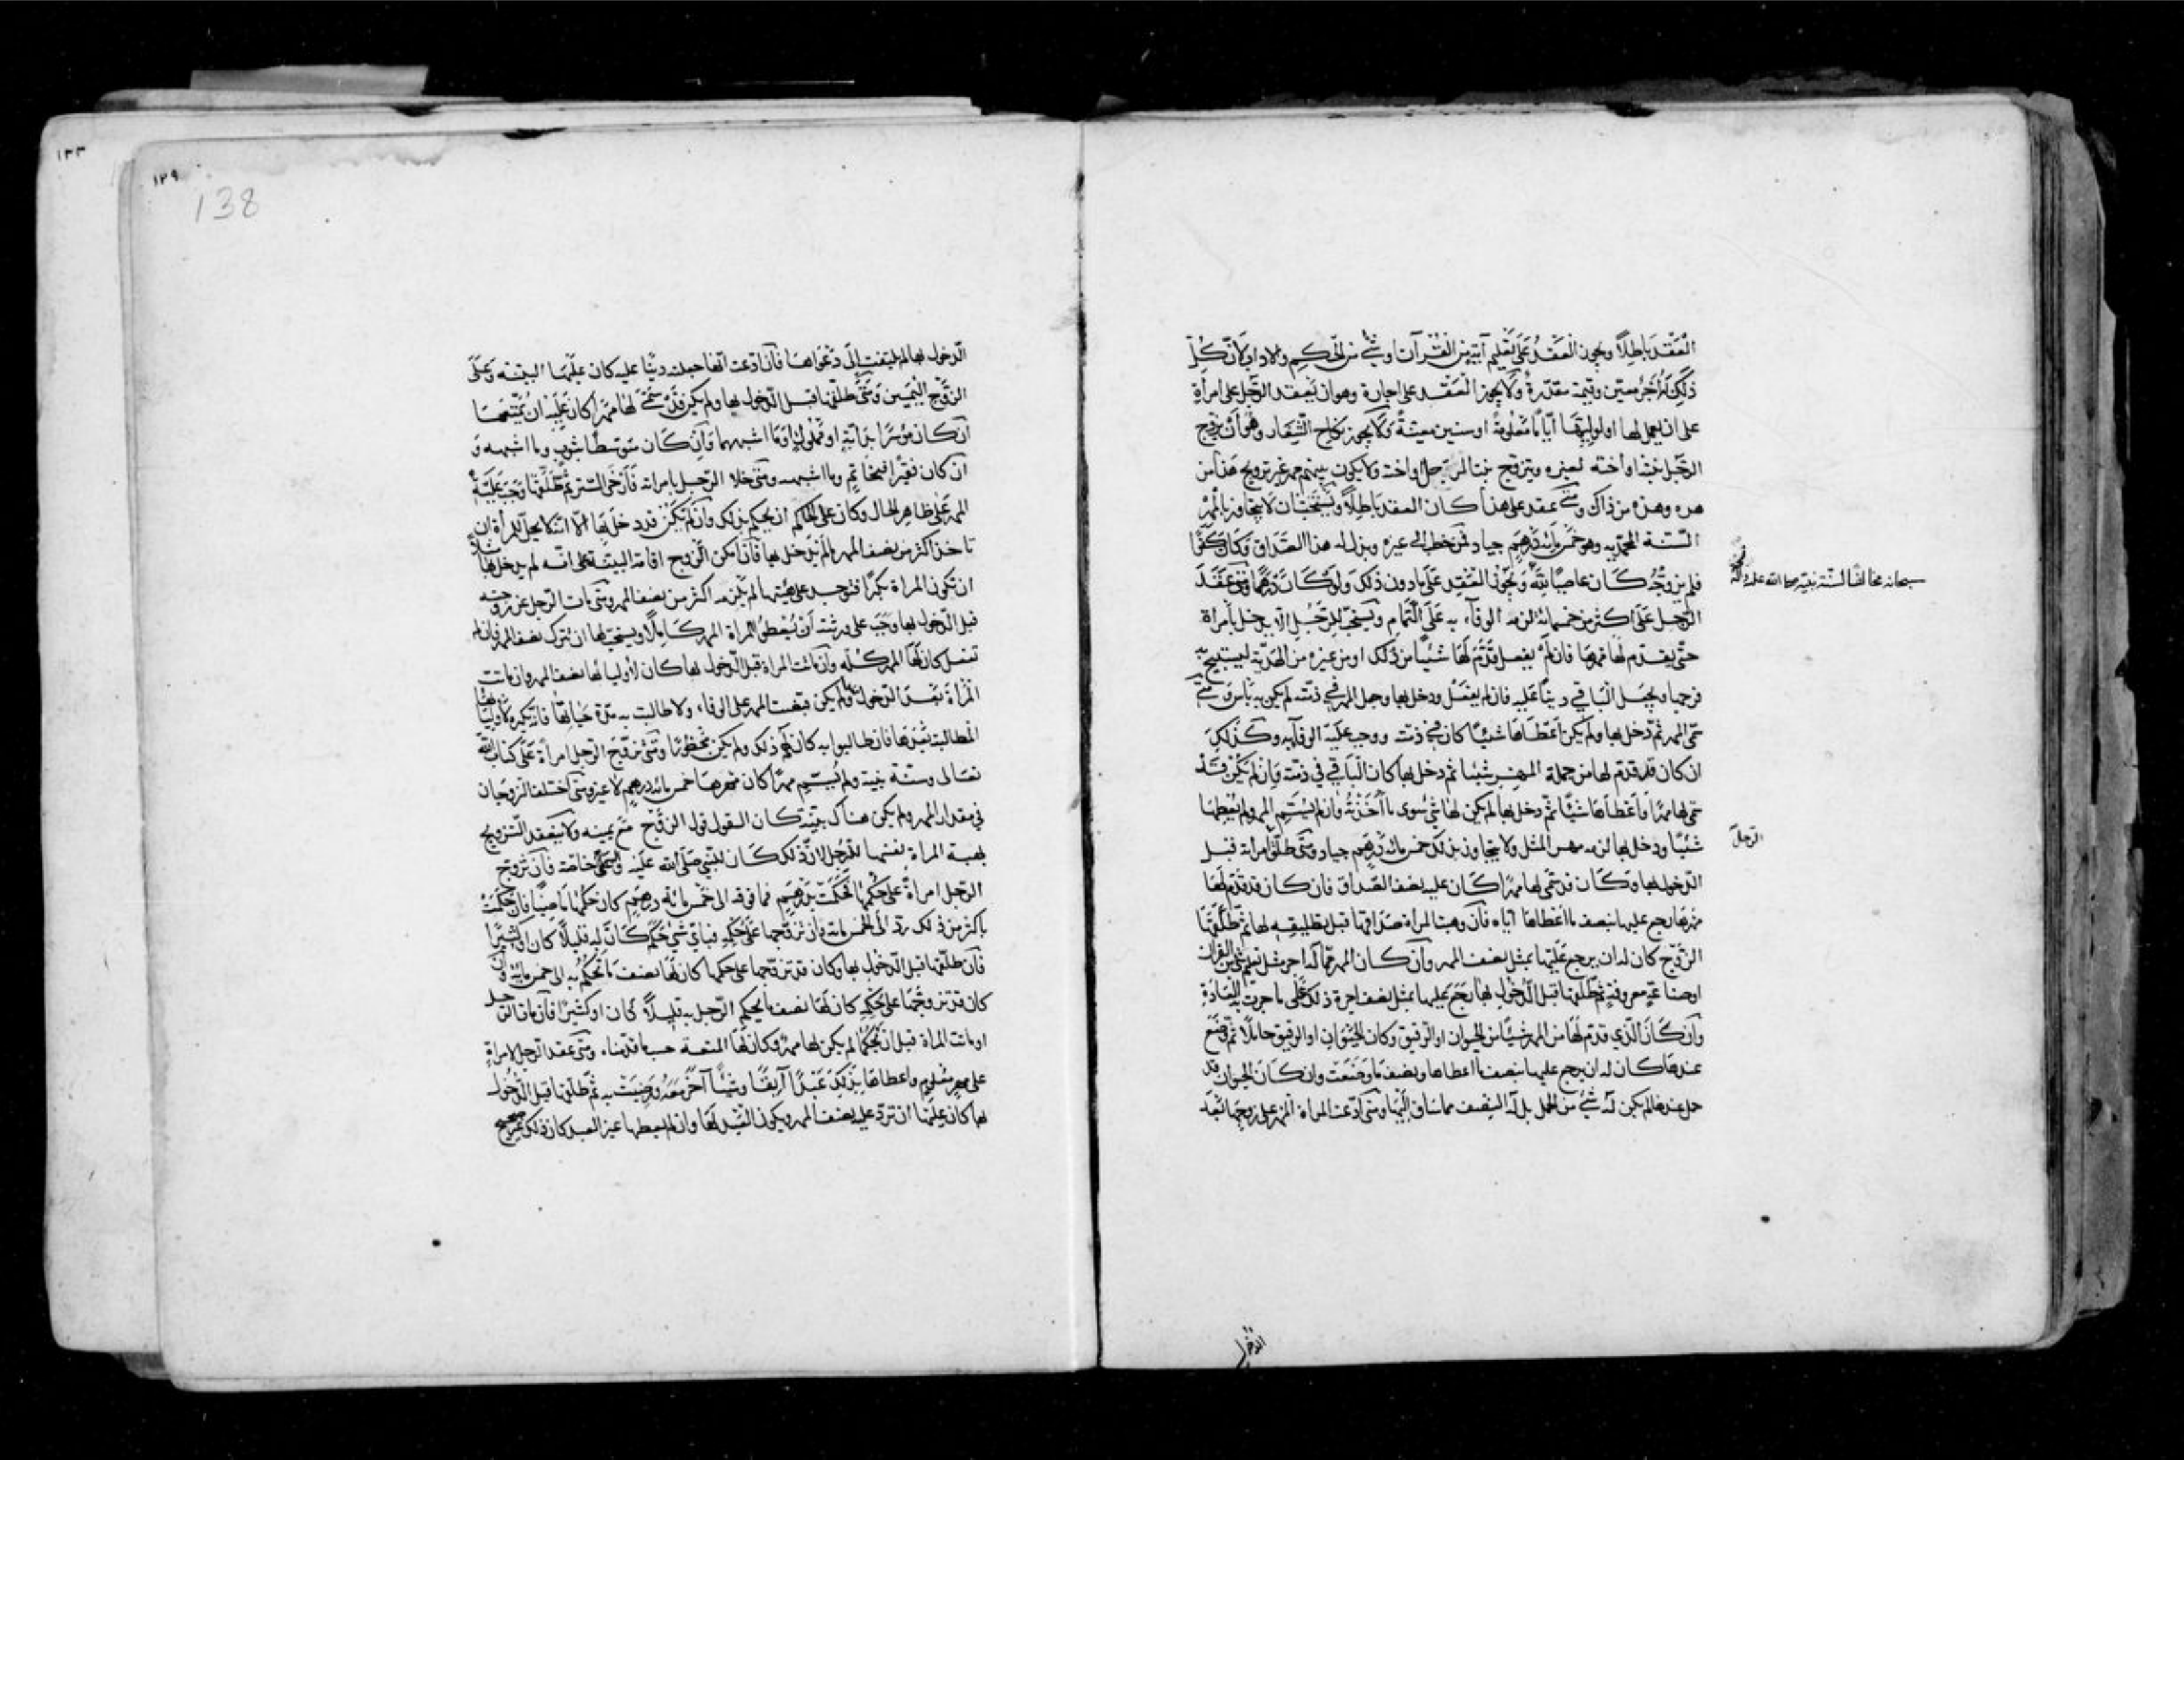 العَقْد بَاطِلًا ويجوز العَقْدُ عَلَى تَعْليم آيةٍ مِنَ القُرآن او شئ من الحكم والاداب لان كُلّ
ذلك له أَجْرٌ معيّن وقيمة مقدّرة ولا يجوز العَقْد على اجارة وهو ان يعقد الرّجل على امرأةٍ
على ان يعمل لها او لوليّها أيّامًا مَعْلومة او سنين معيّنةً ولا يجوز نكاح الشّغار وهُوَ أن يزوّج
الرّجل بنته او أخته لغيره ويتزوّج بنت المزوّج او اخته ولا يكون بينهم مهر غير تزويج هذا من
هذه وهذه من ذاك ومتى عقد على هذا كان العقد بَاطِلًا ويُستحبّ ان لا يتجاوز بالمَهْر
السّنة المحمّدية وهو خَمْس مائة درهم جياد فمن خطب الى غيره وبذل له هذا الصّداق وكان كفوًا
فلم يزوّجه كان عاصيًا لله ويجوز العقد على ما دون ذلك ولو كان دِرْهمًا ومتى عَقَدَ
سبحانه مخالفًا لسنّة نبيّه صلى الله عليه وآله
الرّجل على اكثر من خمسمائة لزمه الوفاء به على التّمام ويستحبّ للرّجل الّا يدخل بامرأة
حتّى يقدّم لها مهرها فان لم يفعل قدّم لها شيئًا من ذلك او من غيره من الهديّة ليستبيح به
فرجها ويجعل الباقي دينًا عليه فان لم يفعل ودخل بها وجعل المهر في ذمّته لم يكن به بأس ومتى
سمّى المهر ثم دخل بها ولم يكن اعطاها شيئًا كان في ذمّته ووجب عليه الوفاء به وكذلك
ان كان قد قدّم لها من جملة المهر شيئًا ثم دخل بها كان الباقي في ذمّته وإن لم يكن قد
سمّى لها مهرًا واعطاها شيئًا ثم دخل بها لم يكن لها شئ سوى ما أخذته وان لم يسمّ المهر ولم يعطها
شيئًا ودخل بها لزمه مهر المثل ولا يتجاوز بذلك خمس مائة درهم جياد ومتى طلّق امرأته قبل
الرّجل
الدّخول بها وكان قد سمّى لها مهرًا كان عليه نصف الصّداق فان كان قد قدّم لها
مهرها رجع عليها بنصف ما اعطاها ايّاه فان وهبت المرأة صداقها قبل تطليقه لها ثم طلّقها
الزّوج كان له ان يرجع عليها بمثل نصف المهر وان كان المهر ممّا له اجر مثل تعليم شئ من القرآن
او صناعةٍ معروفةٍ ثم طلّقها قبل الدّخول بها رجع عليها بمثل نصف اجرة ذلك على ما جرت به العادة
وان كان الّذي قدّم لها من المهر شيئًا من الحيوان او الرّقيق وكان الحيوان او الرقيق حاملًا ثم وضع
عندها كان له ان يرجع عليها بنصف ما اعطاها ونصف ما وضعت وان كان الحيوان قد
حمل عندها لم يكن له شئ من الحمل بل له النصف مما ساق اليها ومتى ادّعت المرأة المهر على زوجها بعد
الدّخول
١٢٩
138
الدّخول بها لم يلتفت إلى دعواها فان ادّعت انّها جعلته دينًا عليه كان عليها البيّنة وعلى
الزّوج اليمين ومتى طلّقها قبل الدّخول بها ولم يكن قد سمّى لها مهرًا كان عليه ان يمتّعها
ان كان موسرًا بدابّةٍ او مملوكٍ او ما اشبههما وان كان متوسّطًا بثوب وما اشبهه و
ان كان فقيرًا فبخاتم وما اشبهه ومتى خلا الرّجل بامرأته فأرخى السّتر ثم طلّقها وجب عليه
المهر على ظاهر الحال وكان على الحاكم ان يحكم بذلك وان لم يكن قد دخل بها الّا انّه لا يحلّ للمرأة ان
تاخذ اكثر من نصف المهر ما لم يدخل بها فان امكن الزّوج اقامة البيّنة على انّه لم يدخل بها مثلًا
ان تكون المرأة بكرًا فتوجد على هيئتها لم يلزمه اكثر من نصف المهر ومتى مات الرّجل عن زوجته
قبل الدّخول بها وجب على ورثته أن يُعطوا المرأة المهر كاملًا ويستحبّ لها ان تترك نصف المهر فان لم
تفعل كان لها المهر كلّه وان ماتت المرأة قبل الدّخول بها كان لأوليائها نصف المهر وان ماتت
المرأة بعد الدّخول بها ولم يكن قبضت المهر على الوفاء ولا طالبت به مدّة حياتها فانّه يكره لأوليائها
المطالبة بعدها فان طالبوا به كان لهم ذلك ولم يكن محظورًا ومتى تزوّج الرّجل امرأة على كتاب الله
تعالى وسنّة نبيّه ولم يُسمّ مهرًا كان مهرها خمس مائة درهم لا غير ومتى اختلف الزّوجان
في مقدار المهر ولم يكن هناك بيّنة كان القول قول الزّوج مع يمينه ولا ينعقد التّزويج
بهبة المرأة نفسها للرّجل لانّ ذلك كان للنبيّ صلّى الله عليه وآله خاصّة فان تزوّج
الرّجل امرأةً على حكمها فحكمت بدرهم فما فوقه الى خمس مائة درهم كان حكمها ماضيًا فان حكمت
باكثر من ذلك ردّ الى الخمس مائة فان تزوّجها على حكمه فبأيّ شئ حكم كان له قليلًا كان او كثيرًا
فان طلّقها قبل الدّخول بها وكان قد تزوّجها على حكمها كان لها نصف ما تحكم به الى خمس مائة وان
كان قد تزوّجها على حكمه كان لها نصف ما يحكم الرّجل به قليلًا كان او كثيرًا فان مات الرّجل
او ماتت المرأة قبل ان يحكما لم يكن لها مهر وكان لها المتعة حسبما قدّمناه ومتى عقد الرّجل لامرأةٍ
على مهر معلومٍ واعطاها بذلك عبدًا آبقًا وشيئًا آخر معه ورضيت به ثم طلّقها قبل الدّخول
بها كان عليها ان تردّ عليه نصف المهر ويكون العبد لها وان لم يعطها غير العبد كان ذلك غير صحيح
١٣٣